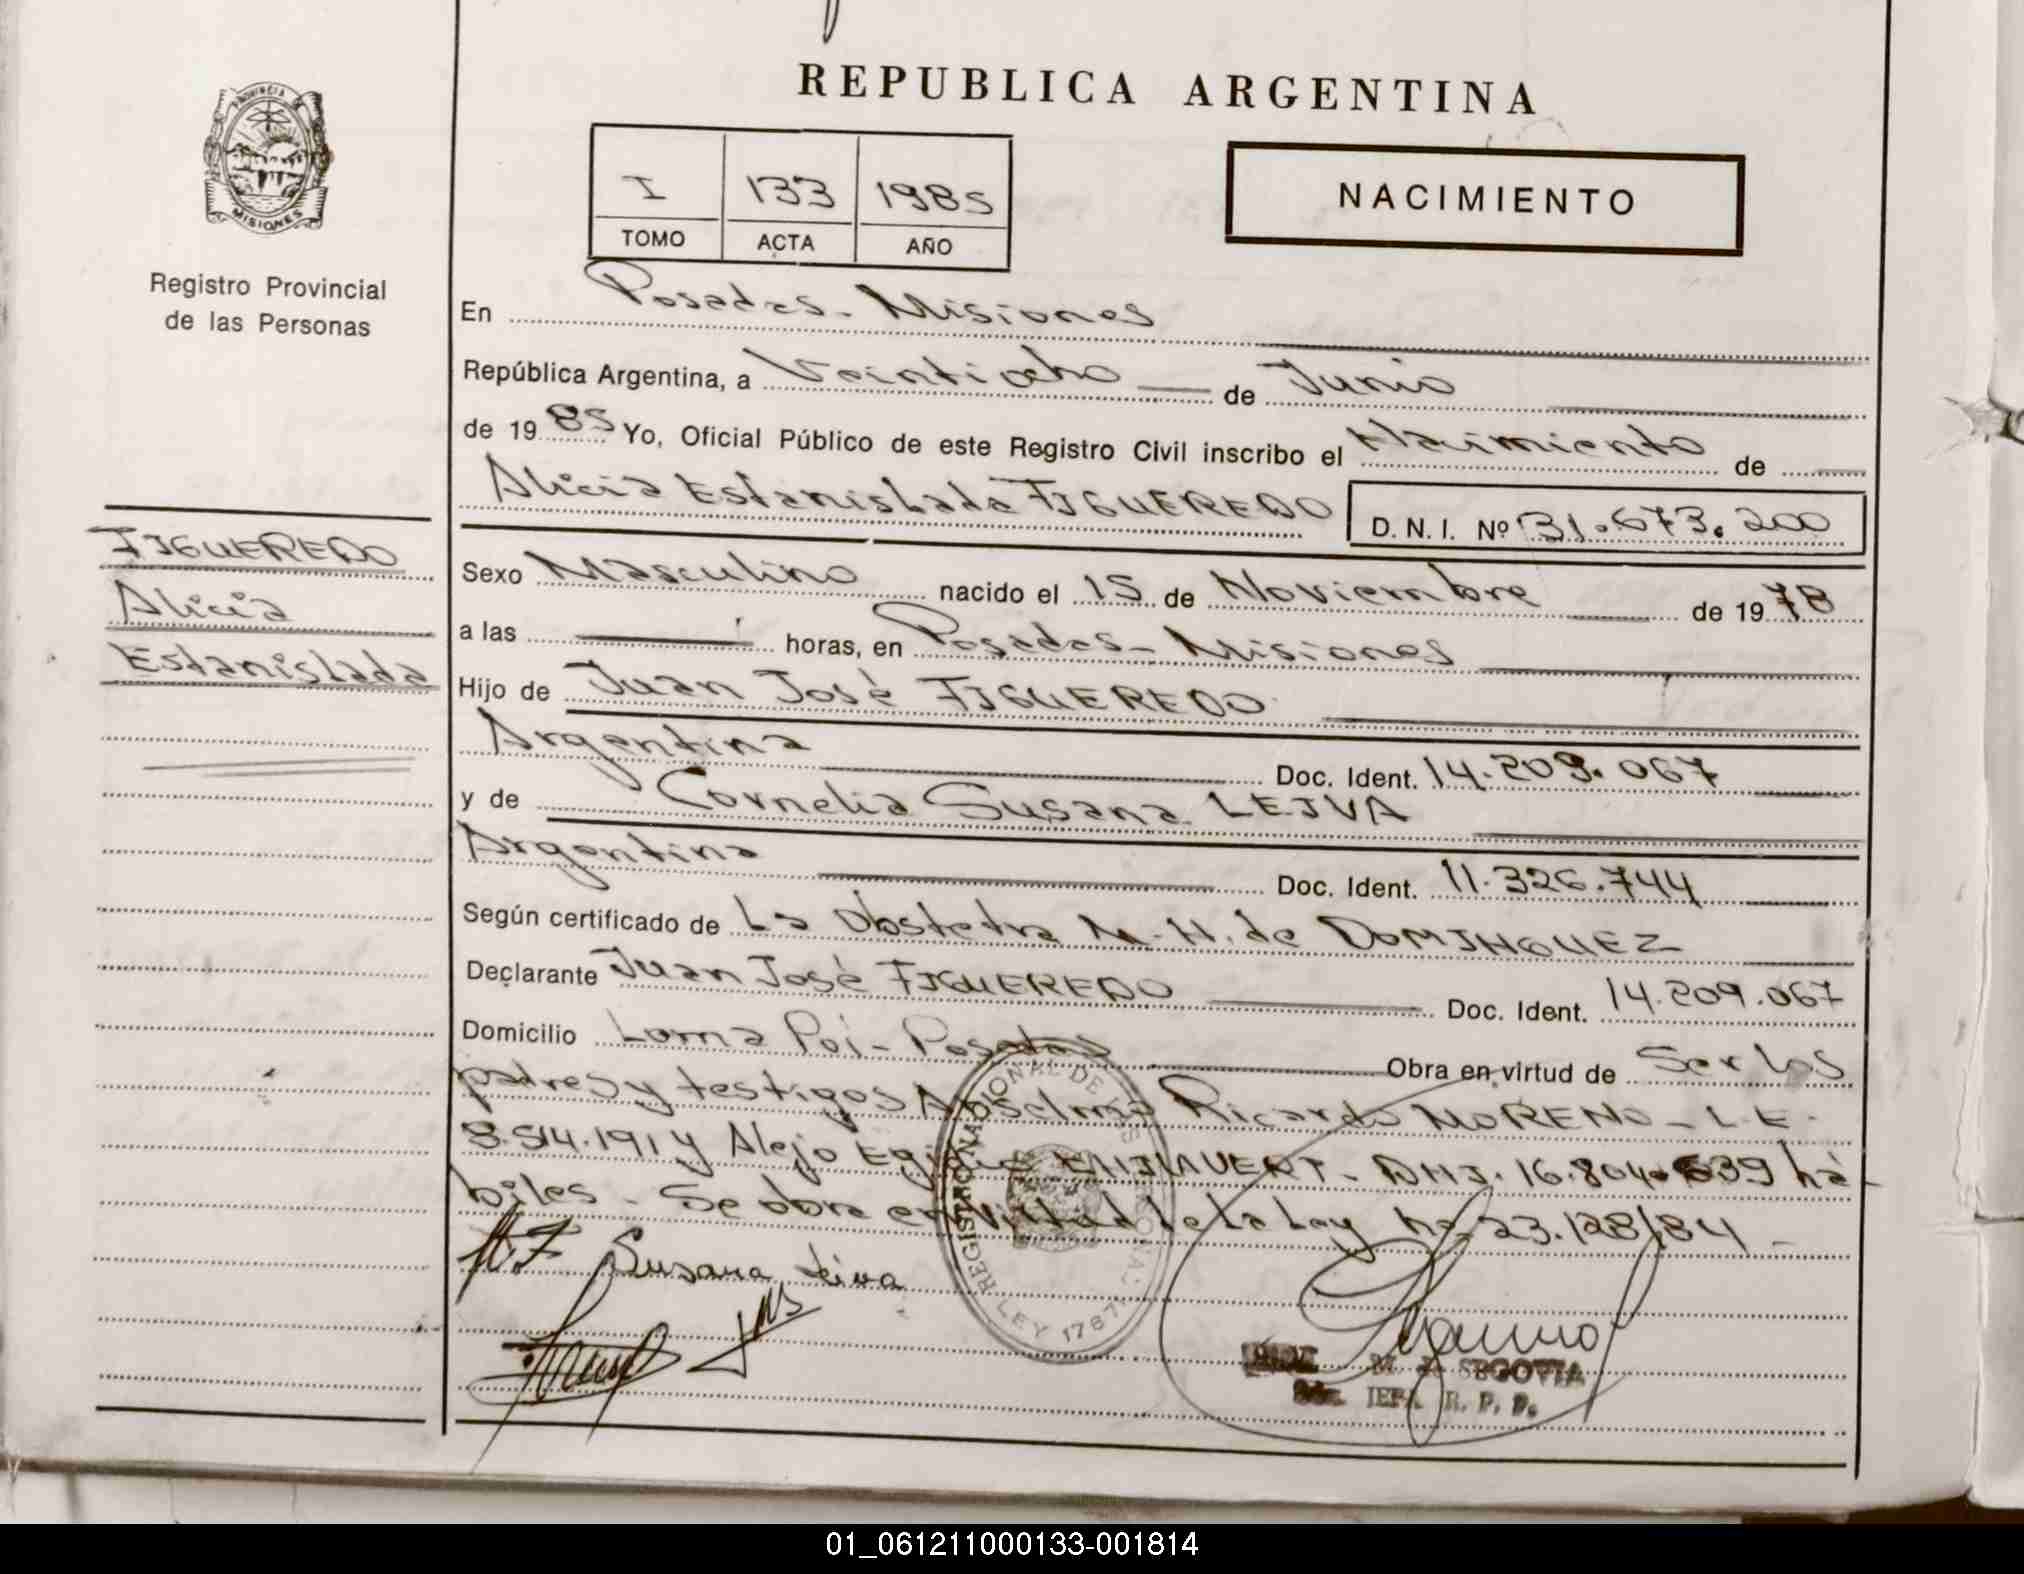 REPUBLICA ARGENTINA
PROVINCIA DE
MISIONES
Registro Provincial
de las Personas
I 133 1985
TOMO ACTA AÑO
NACIMIENTO
En Posadas - Misiones
República Argentina, a Veintiocho de Junio
de 1985 Yo, Oficial Público de este Registro Civil inscribo el Nacimiento de
Alicia Estanislada FIGUEREDO D. N. I. Nº 31.673.200
FIGUEREDO
Alicia
Estanislada
Sexo Masculino nacido el 15 de Noviembre de 1978
a las horas, en Posadas - Misiones
Hijo de Juan José FIGUEREDO
Argentina Doc. Ident. 14.209.067
y de Cornelia Susana LEIVA
Argentina Doc. Ident. 11.326.744
Según certificado de La Obstetra M. H. de DOMINGUEZ
Declarante Juan José FIGUEREDO Doc. Ident. 14.209.067
Domicilio Loma Poi - Posadas Obra en virtud de Ser los
padres y testigos Abselmo Ricardo MORENO - L.E.
8.514.191 y Alejo - DNI. 16.804.639 há
biles - Se obra en virtud de la Ley nº 23.128/84 -
REGISTRO NACIONAL DE LAS PERSONAS
LEY 1767
H.F Susana Leiva
M. SEGOVIA
JEFA R. P. P.
01_061211000133-001814